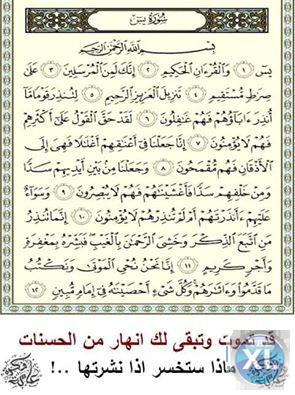 سُورَةُ يسٓ
بِسْمِ اللَّهِ الرَّحْمَٰنِ الرَّحِيمِ
يسٓ ١ وَالْقُرْءَانِ الْحَكِيمِ ٢ إِنَّكَ لَمِنَ الْمُرْسَلِينَ ٣ عَلَىٰ
صِرَاطٍ مُّسْتَقِيمٍ ٤ تَنزِيلَ الْعَزِيزِ الرَّحِيمِ ٥ لِتُنذِرَ قَوْمًا مَّا
أُنذِرَ ءَابَاؤُهُمْ فَهُمْ غَٰفِلُونَ ٦ لَقَدْ حَقَّ الْقَوْلُ عَلَىٰ أَكْثَرِهِمْ
فَهُمْ لَا يُؤْمِنُونَ ٧ إِنَّا جَعَلْنَا فِي أَعْنَٰقِهِمْ أَغْلَٰلًا فَهِيَ إِلَى
الْأَذْقَانِ فَهُم مُّقْمَحُونَ ٨ وَجَعَلْنَا مِنۢ بَيْنِ أَيْدِيهِمْ سَدًّا
وَمِنْ خَلْفِهِمْ سَدًّا فَأَغْشَيْنَٰهُمْ فَهُمْ لَا يُبْصِرُونَ ٩ وَسَوَاءٌ
عَلَيْهِمْ ءَأَنذَرْتَهُمْ أَمْ لَمْ تُنذِرْهُمْ لَا يُؤْمِنُونَ ١٠ إِنَّمَا تُنذِرُ
مَنِ اتَّبَعَ الذِّكْرَ وَخَشِيَ الرَّحْمَٰنَ بِالْغَيْبِ فَبَشِّرْهُ بِمَغْفِرَةٍ
وَأَجْرٍ كَرِيمٍ ١١ إِنَّا نَحْنُ نُحْيِ الْمَوْتَىٰ وَنَكْتُبُ
مَا قَدَّمُوا وَءَاثَٰرَهُمْ وَكُلَّ شَيْءٍ أَحْصَيْنَٰهُ فِي إِمَامٍ مُّبِينٍ ١٢
قد تموت وتبقى لك انهار من الحسنات
ماذا ستخسر اذا نشرتها ..!